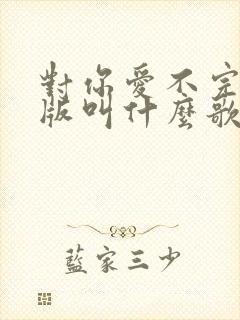 對你愛不完
版叫什麼歌
藍家三少